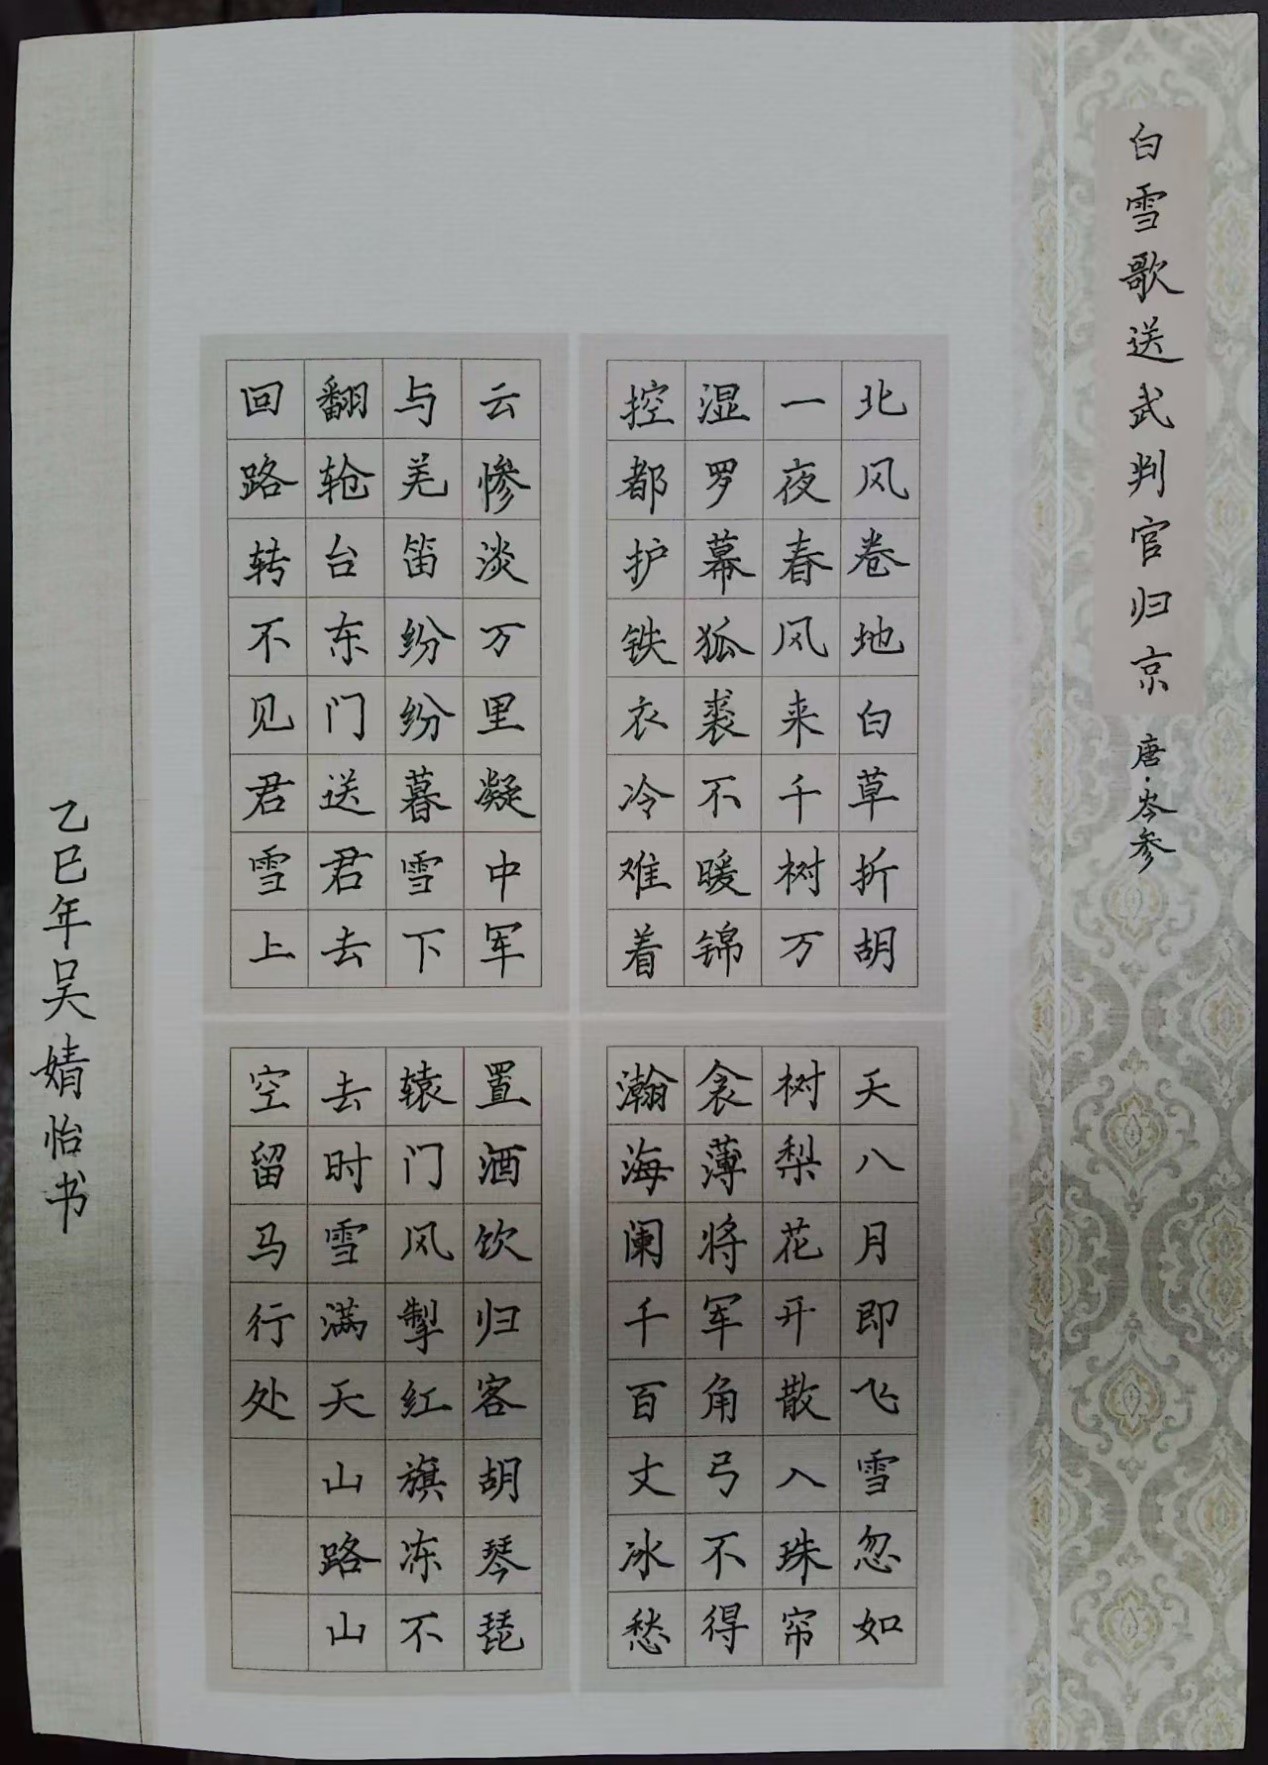 白雪歌送武判官归京
唐·岑参
北风卷地白草折胡
天八月即飞雪忽如
一夜春风来千树万
树梨花开散入珠帘
湿罗幕狐裘不暖锦
衾薄将军角弓不得
控都护铁衣冷难着
瀚海阑千百丈冰愁
云惨淡万里凝中军
置酒饮归客胡琴琵
与羌笛纷纷暮雪下
辕门风掣红旗冻不
翻轮台东门送君去
去时雪满天山路山
回路转不见君雪上
空留马行处
乙巳年吴婧怡书